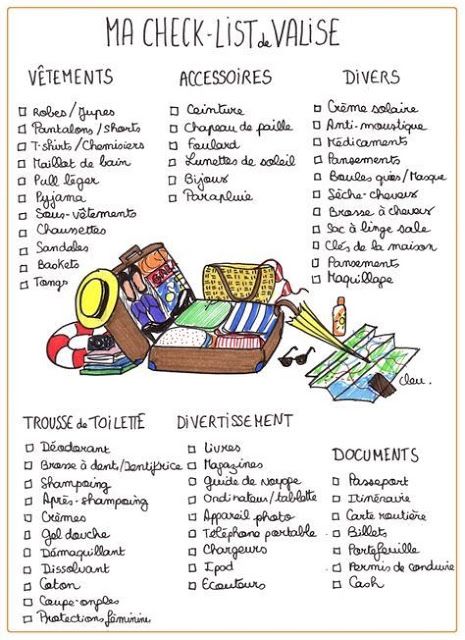 MA CHECK-LIST de VALISE
VÊTEMENTS
☐ Robes/Jupes
☐ Pantalons/Shorts
☐ T-shirts/Chemisiers
☐ Maillot de bain
☐ Pull léger
☐ Pyjama
☐ Sous-vêtements
☐ Chaussettes
☐ Sandales
☐ Baskets
☐ Tongs
ACCESSOIRES
☐ Ceinture
☐ Chapeau de paille
☐ Foulard
☐ Lunettes de soleil
☐ Bijoux
☐ Parapluie
DIVERS
☐ Crème solaire
☐ Anti-moustique
☐ Médicaments
☐ Pansements
☐ Boules quies/Masque
☐ Sèche-cheveux
☐ Brosse à cheveux
☐ Sac à linge sale
☐ Clés de la maison
☐ Pansements
☐ Maquillage
TROUSSE de TOILETTE
☐ Déodorant
☐ Brosse à dent/Dentifrice
☐ Shampoing
☐ Après-shampoing
☐ Crèmes
☐ Gel douche
☐ Démaquillant
☐ Dissolvant
☐ Coton
☐ Coupe-ongles
☐ Protections féminines
DIVERTISSEMENT
☐ Livres
☐ Magazines
☐ Guide de voyage
☐ Ordinateur/tablette
☐ Appareil photo
☐ Téléphone portable
☐ Chargeurs
☐ Ipod
☐ Ecouteurs
DOCUMENTS
☐ Passeport
☐ Itinéraire
☐ Carte routière
☐ Billets
☐ Portefeuille
☐ Permis de conduire
☐ Cash